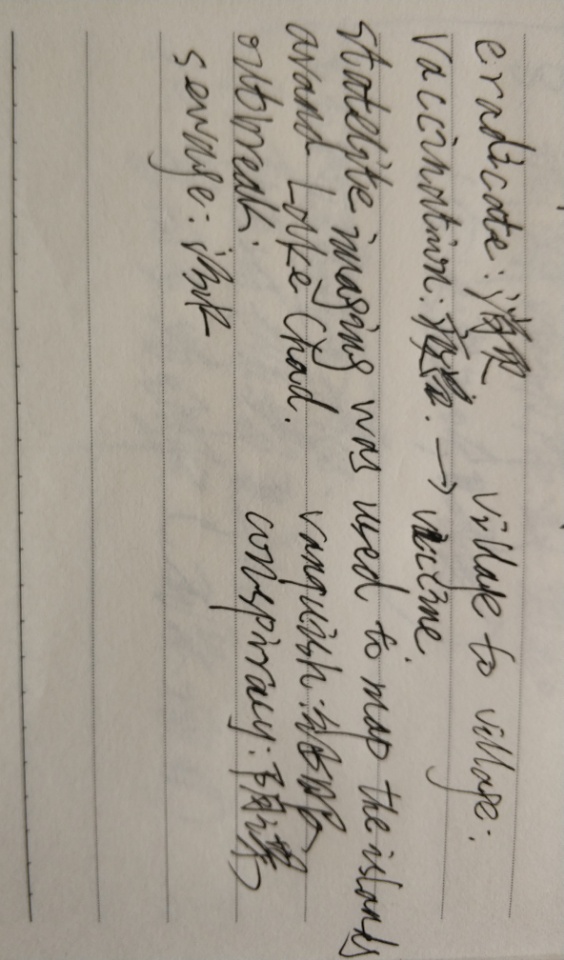 eradicate: 消灭 village to village.
vaccination: 疫苗. → vaccine.
Statelite imaging was used to map the islands
around Lake Chad. vanquish:
outbreak: conspiracy: 阴谋
sewage: 污水